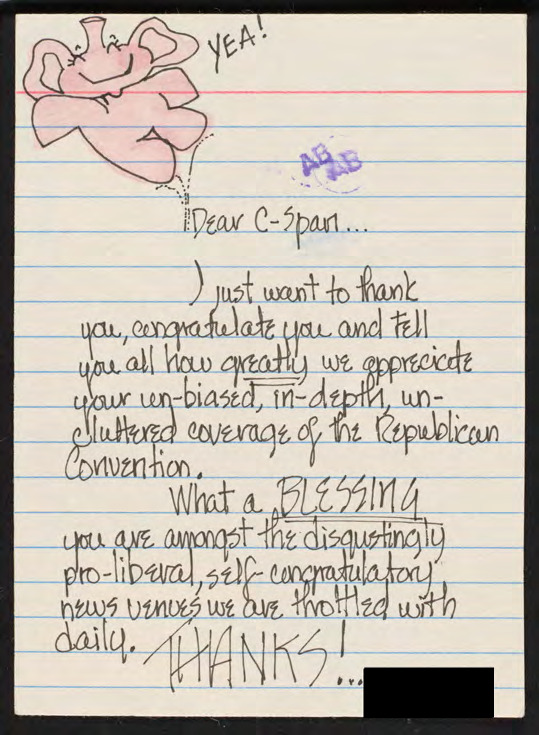 YEA!
AB
AB
Dear C-Span...
I just want to thank
you, congratulate you and tell
you all how greatly we appreciate
your un-biased, in-depth, un-
cluttered coverage of the Republican
Convention.
What a BLESSING
you are amongst the disgustingly
pro-liberal, self-congratulatory
news venues we are throttled with
daily. THANKS!...